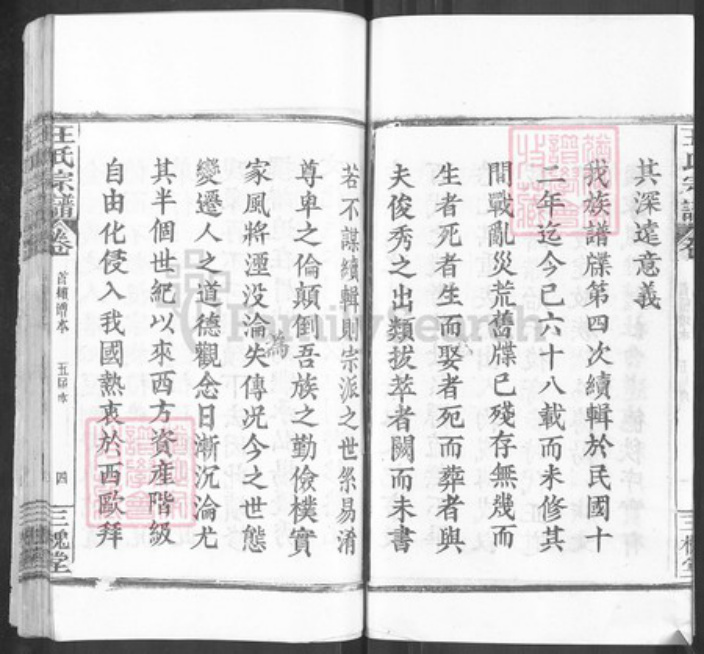 其深遠意義
我族譜牒第四次續輯於民國十
二年迄今已六十八載而未修其
間戰亂災荒舊牒已殘存無幾而
生者死者生而娶者死而葬者與
夫俊秀之出類拔萃者闕而未書
若不謀續輯則宗派之世系易淆
尊卑之倫顛倒吾族之勤儉樸實
為
家風將湮没淪失傳况今之世態
變遷人之道德觀念日漸沉淪尤
其半個世紀以來西方資產階級
自由化侵入我國熱衷於西歐拜
王氏宗譜
卷首
五屆本
四
三槐堂
FamilySearch